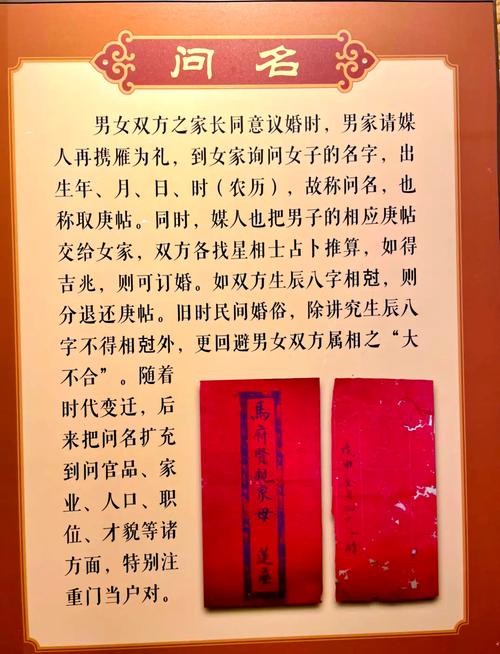 问名
男女双方之家长同意议婚时，男家请媒
人再携雁为礼，到女家询问女子的名字，出
生年、月、日、时（农历），故称问名，也
称取庚帖。同时，媒人也把男子的相应庚帖
交给女家，双方各找星相士占卜推算，如得
吉兆，则可订婚。如双方生辰八字相尅，则
分退还庚帖。旧时民间婚俗，除讲究生辰八
字不得相尅外，更回避男女双方属相之“大
不合”。随着
时代变迁，后
来把问名扩充
到问官品、家
业、人口、职
位、才貌等诸
方面，特别注
重门当户对。
馬府賢親家母